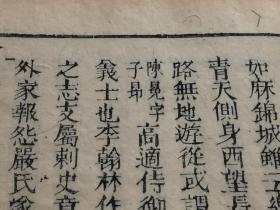 如麻錦城雖云
青天側身西望長
路無地遊從或謂
陳晃字子昻高適侍御
義士也李翰林作
之志支屬刺史章
外家報怨嚴氏遂